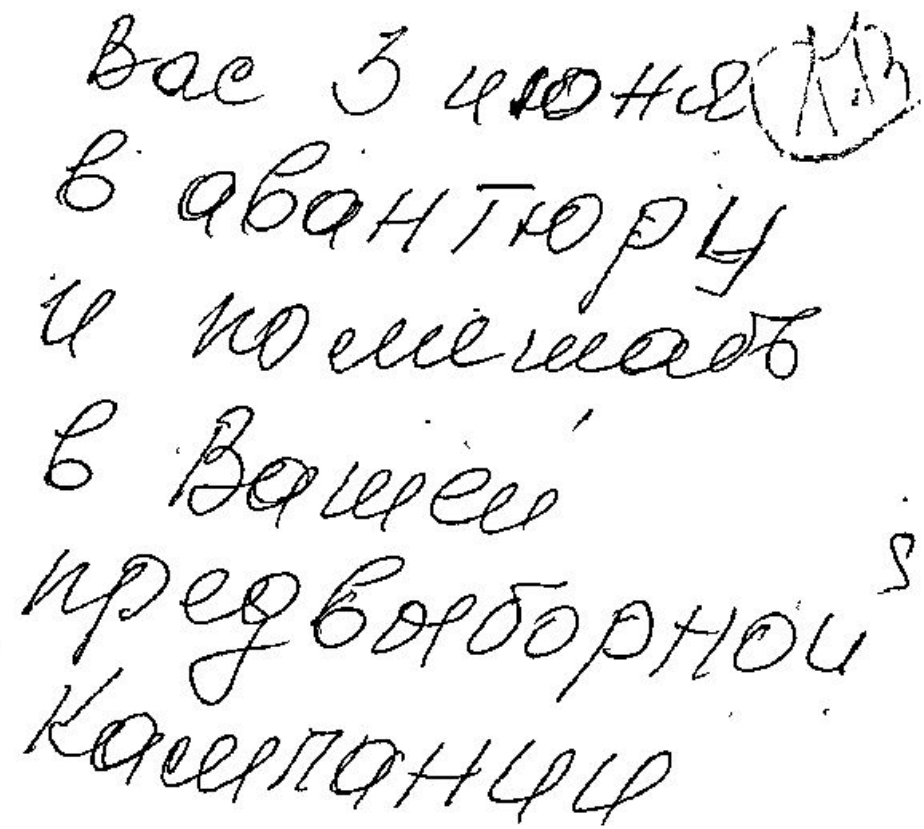 Вас 3 июня
в авантюру
и помешать
в Вашей
предвыборной
кампании